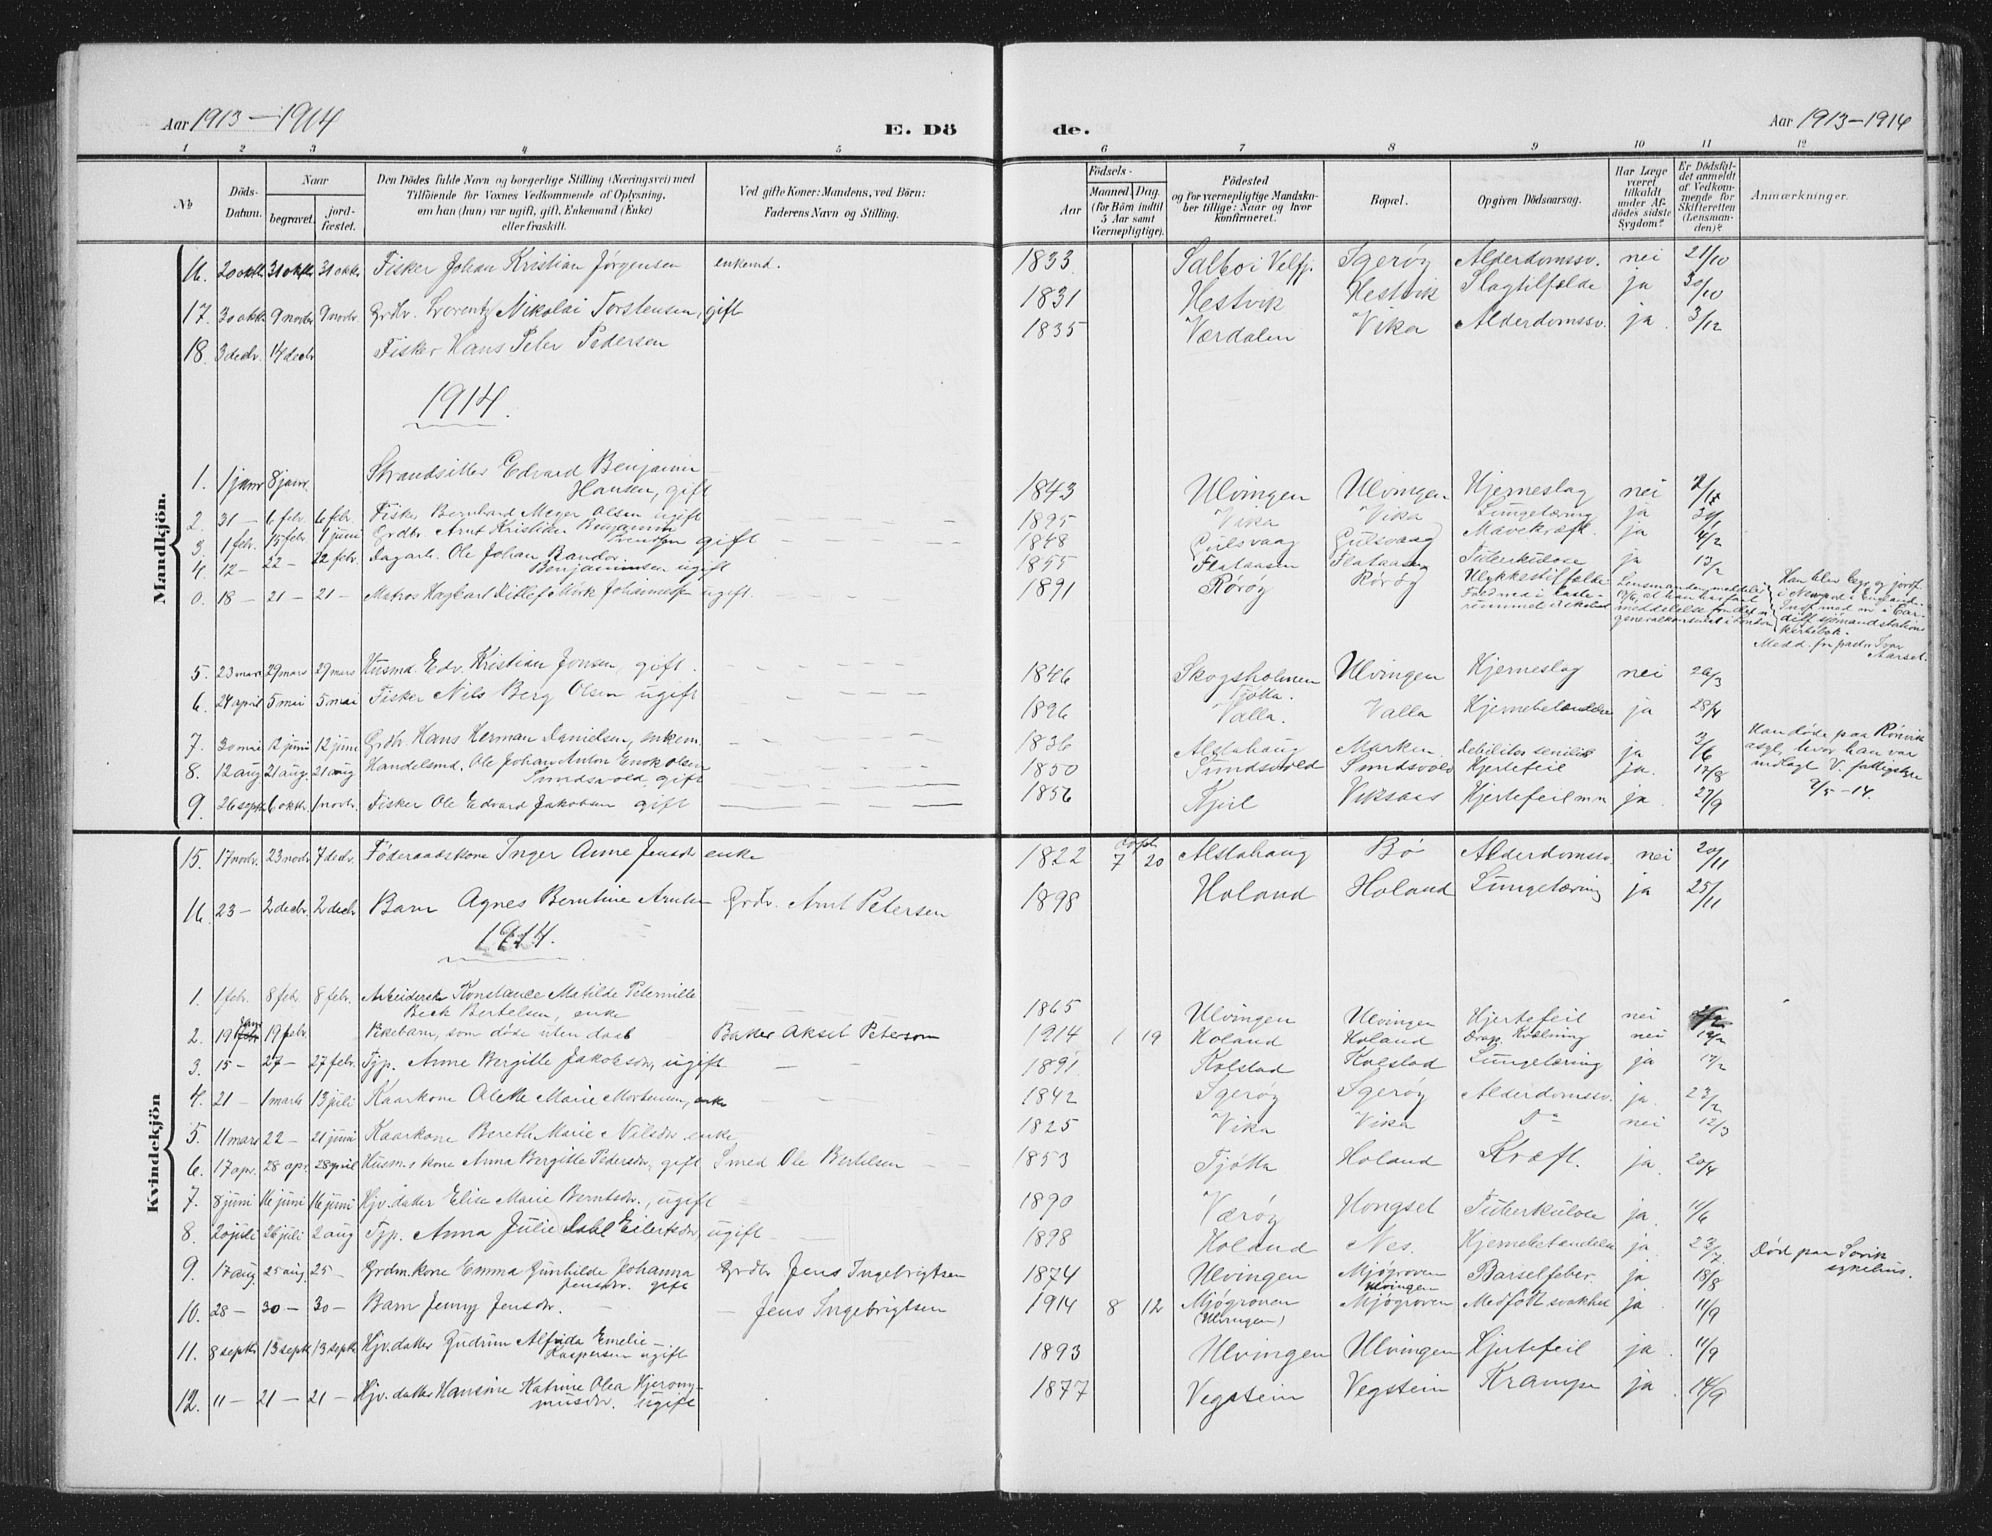 Aar 1913–1914
E. Dö
1 2 3 4 5
№
Döds-Datum.
Naar
begravet.
jord-fæstet.
Den Dödes fulde Navn og borgerlige Stilling (Næringsvei) med
Tilföiende for Voxnes Vedkommende af Oplysning,
om han (hun) var ugift, gift, Enkemand (Enke)
eller fraskilt.
Ved gifte Koner: Mandens, ved Börn:
Faderens Navn og Stilling.
Mandkjön.
16. 20 oktr. 31 oktr. 31 oktr. Fisker Johan Kristian Jørgensen enkemd.
17. 30 oktr. 9 novbr 9 novbr. Grdbr. Lorentz Nikolai Torstensen, gift
18. 3 decbr. 14 decbr Fisker Hans Peter Pedersen
1914.
1. 1 janr 8 janr. Strandsitter Edvard Benjamin
Hansen, gift
2. 31 – 6 febr. 6 febr. Fisker Bernhard Meyer Olsen ugift
3. 1 febr. 15 febr 1 juni Grdbr Arnt Kristian Benjamin
Svendsen gift
4. 12 – 22 – 22 febr. Dagarb. Ole Johan Randor.
Benjaminsen ugift
0. 18 – 21 – 21 – Matros Hagbart Ditlef Mørk Johannesen ugift.
5. 23 mars 29 mars 29 mars Husmd. Edv. Kristian Jonsen, gift.
6. 24 april 5 mai 5 mai Fisker Nils Berg Olsen ugift
7. 30 mai 12 juni 12 juni Grdbr. Hans Herman Danielsen, enkem.
8. 12 aug 21 aug. 21 aug Handelsmd. Ole Johan Anton Enok Olsen
Sundsvold, gift
9. 26 septr 6 oktr. 1 novbr. Fisker Ole Edvard Jakobsen gift
Kvindekjön
15. 17 novbr. 23 novbr 7 decbr. Føderaadskone Inger Anne Jensdr. enke
16. 23 – 2 decbr. 2 decbr Barn Agnes Berntine Arnts– Grdbr. Arnt Petersen
1914.
1. 1 febr. 8 febr 8 febr. Arbeiderske Konstance Matilde Peternille
Beck Bertelsen, enke
2. 19 janr 19 febr. Pikebarn, som døde uten daab Baker Aksel Peterson
3. 15 – 27 – 27 febr. Tjp. Anne Bergitte Jakobsdr, ugift
4. 21 – 1 marts 13 juli Kaarkone Olette Marie Mortensen, enke
5. 11 mars 22 – 21 juni Kaarkone Bereth Marie Nilsdr. enke
6. 17 apr. 28 apr. 28 april Husm.s kone Anna Bergitte Pedersdr, gift Smed Ole Bertelsen
7. 8 juni 16 juni 16 juni Hjv. datter Elise Marie Berntsdr., ugift
8. 20 juli 26 juli 2 aug Tjp. Anna Julie Dahl Eilertsdr ugift
9. 17 aug 25 aug. 25 – Grdm. kone Emma Gunhilde Johanna Grdbr Jens Ingebrigtsen
Jensdr. gift
10. 28 – 30 – 30 – Barn Jenny Jensdr. – Jens Ingebrigtsen
11. 8 septr 13 septr 13 septr Hjv. datter Gudrun Alfrida Emelie
Kaspersen ugift
12. 11 – 21 – 21 – Hjv. datter Hansine Katrine Olea Hjerony-
musdr. ugift
de.
Aar 1913–1914
6 7 8 9 10 11 12
Födsels-
Aar
Maaned. Dag.
(for Börn indtil
5 Aar samt
Værnepligtige).
Födested
og for værnepligtige Mandska-
ber tillige: Naar og hvor
konfirmeret.
Bopæl.
Opgiven Dödsaarsag.
Har Læge
været
tilkaldt
under Af-
dödes sidste
Sygdom?
Er Dödsfal-
det anmeldt
af Vedkom-
mende for
Skifteretten
(Lensman-
den)?
Anmærkninger.
1833 Salbo i Velfj. Igerøy Alderdomssv. nei 21/10
1831 Hestvik Hestvik Slagtilfælde ja 30/10
1835 Værdalen Vika Alderdomssv. ja. 3/12
1843 Ulvingen Ulvingen Hjerneslag nei
1895 Vika Vika Lungetæring ja
1848 Gulsvaag Gulsvaag Mavekræft. ja 4/2
1855 Flataasen Flataasen Tuberkulose ja 13/2
1891 Rørøy Rørøy Ulykkestilfælde
Han blev begr. og jordf.
i Newport i England.
Indf. med nr i Car-
diff sjømandstations
kirkebok.
Medd. fra pastor Ivar
Aarset.
1846 Skogsholmen Ulvingen Hjerneslag nei 26/3
Tjøtta.
1896 Valla. Valla Hjernebetændelse ja 28/4
1836 Alstahaug Marken debilitas senilis ja 3/6
Han døde paa Rønvik
asyl, hvor han var
indlagt V. fattigstyre
2/5–14.
1850 Sundsvold Sundsvold Hjertefeil ja. 17/8
1856 Kjul Viksaas Hjertefeil m.m ja. 27/9
1822 7 20 Alstahaug Bø Alderdomssv. nei 20/11
1898 Holand Holand Lungetæring ja 25/11
1865 Ulvingen Ulvingen Hjertefeil nei
1914 1 19 Holand Holand Drap. Kvælning nei 19/2
1891 Kolstad Kolstad Lungetæring ja 17/2
1842 Igerøy Igerøy Alderdomssv. ja. 23/2
1825 Vika Vika Do nei 12/3
1853 Tjøtta Holand Kræft. ja. 20/4
1890 Værøy Hongset Tuberkulose ja. 11/6
1898 Holand Nes. Hjernebetændelse ja. 23/7
1874 Ulvingen Mjøgroven Barselfeber. ja 18/8 Død paa Søvik
Ulvingen sykehus.
1914 8 12 Mjøgroven Mjøgroven Medfødt svakhed ja 11/9
(Ulvingen)
1893 Ulvingen Ulvingen Hjertefeil ja. 11/9
1877 Vegstein Vegstein Krampe ja 14/9